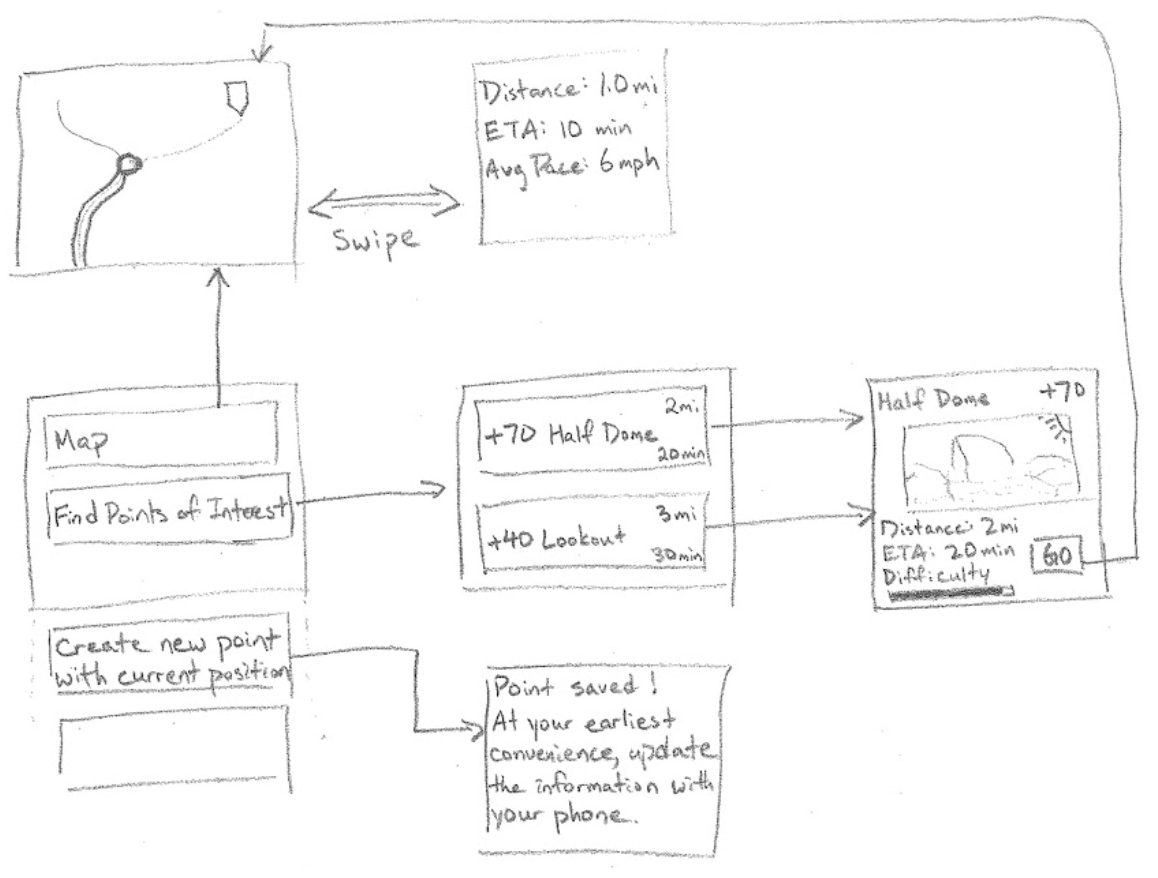 Distance: 1.0mi
ETA: 10 min
Avg Pace: 6mph
Swipe
Map
Find Points of Interest
Create new point
with current position
2mi
+70 Half Dome
20min
3mi
+40 Lookout
30min
Half Dome +70
Distance: 2mi
ETA: 20min
GO
Difficulty
Point saved!
At your earliest
convenience, update
the information with
your phone.